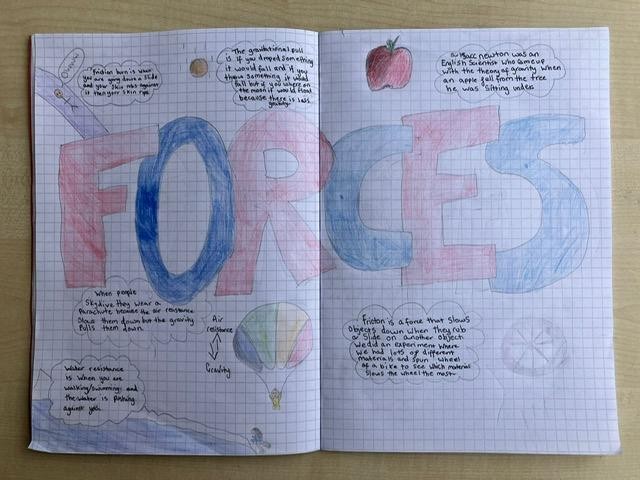 Owww
Friction burn is when
you are going down a slide
and your skin rubs against
it then your skin rips
The gravitational pull
is if you droped something
it would fall and if you
throw something it would
fall but if you where on
the moon it would float
because there is less
gravity
Isacc newton was an
English Scientist who came up
with the theory of gravity when
an apple fall from the tree
he was sitting under
FORCES
When people
Skydive they wear a
Parachute because the air resistance
Slows them down but the gravity
Pulls them down.
Air
resistance
Gravity
Water resistance
is when you are
walking/swimming and
the water is pushing
against you
Friction is a force that slows
Objects down when they rub
or Slide on another object
We did an experiment where
we had lots of different
materials and spun wheel
of a bike to see which material
Slows the wheel the most